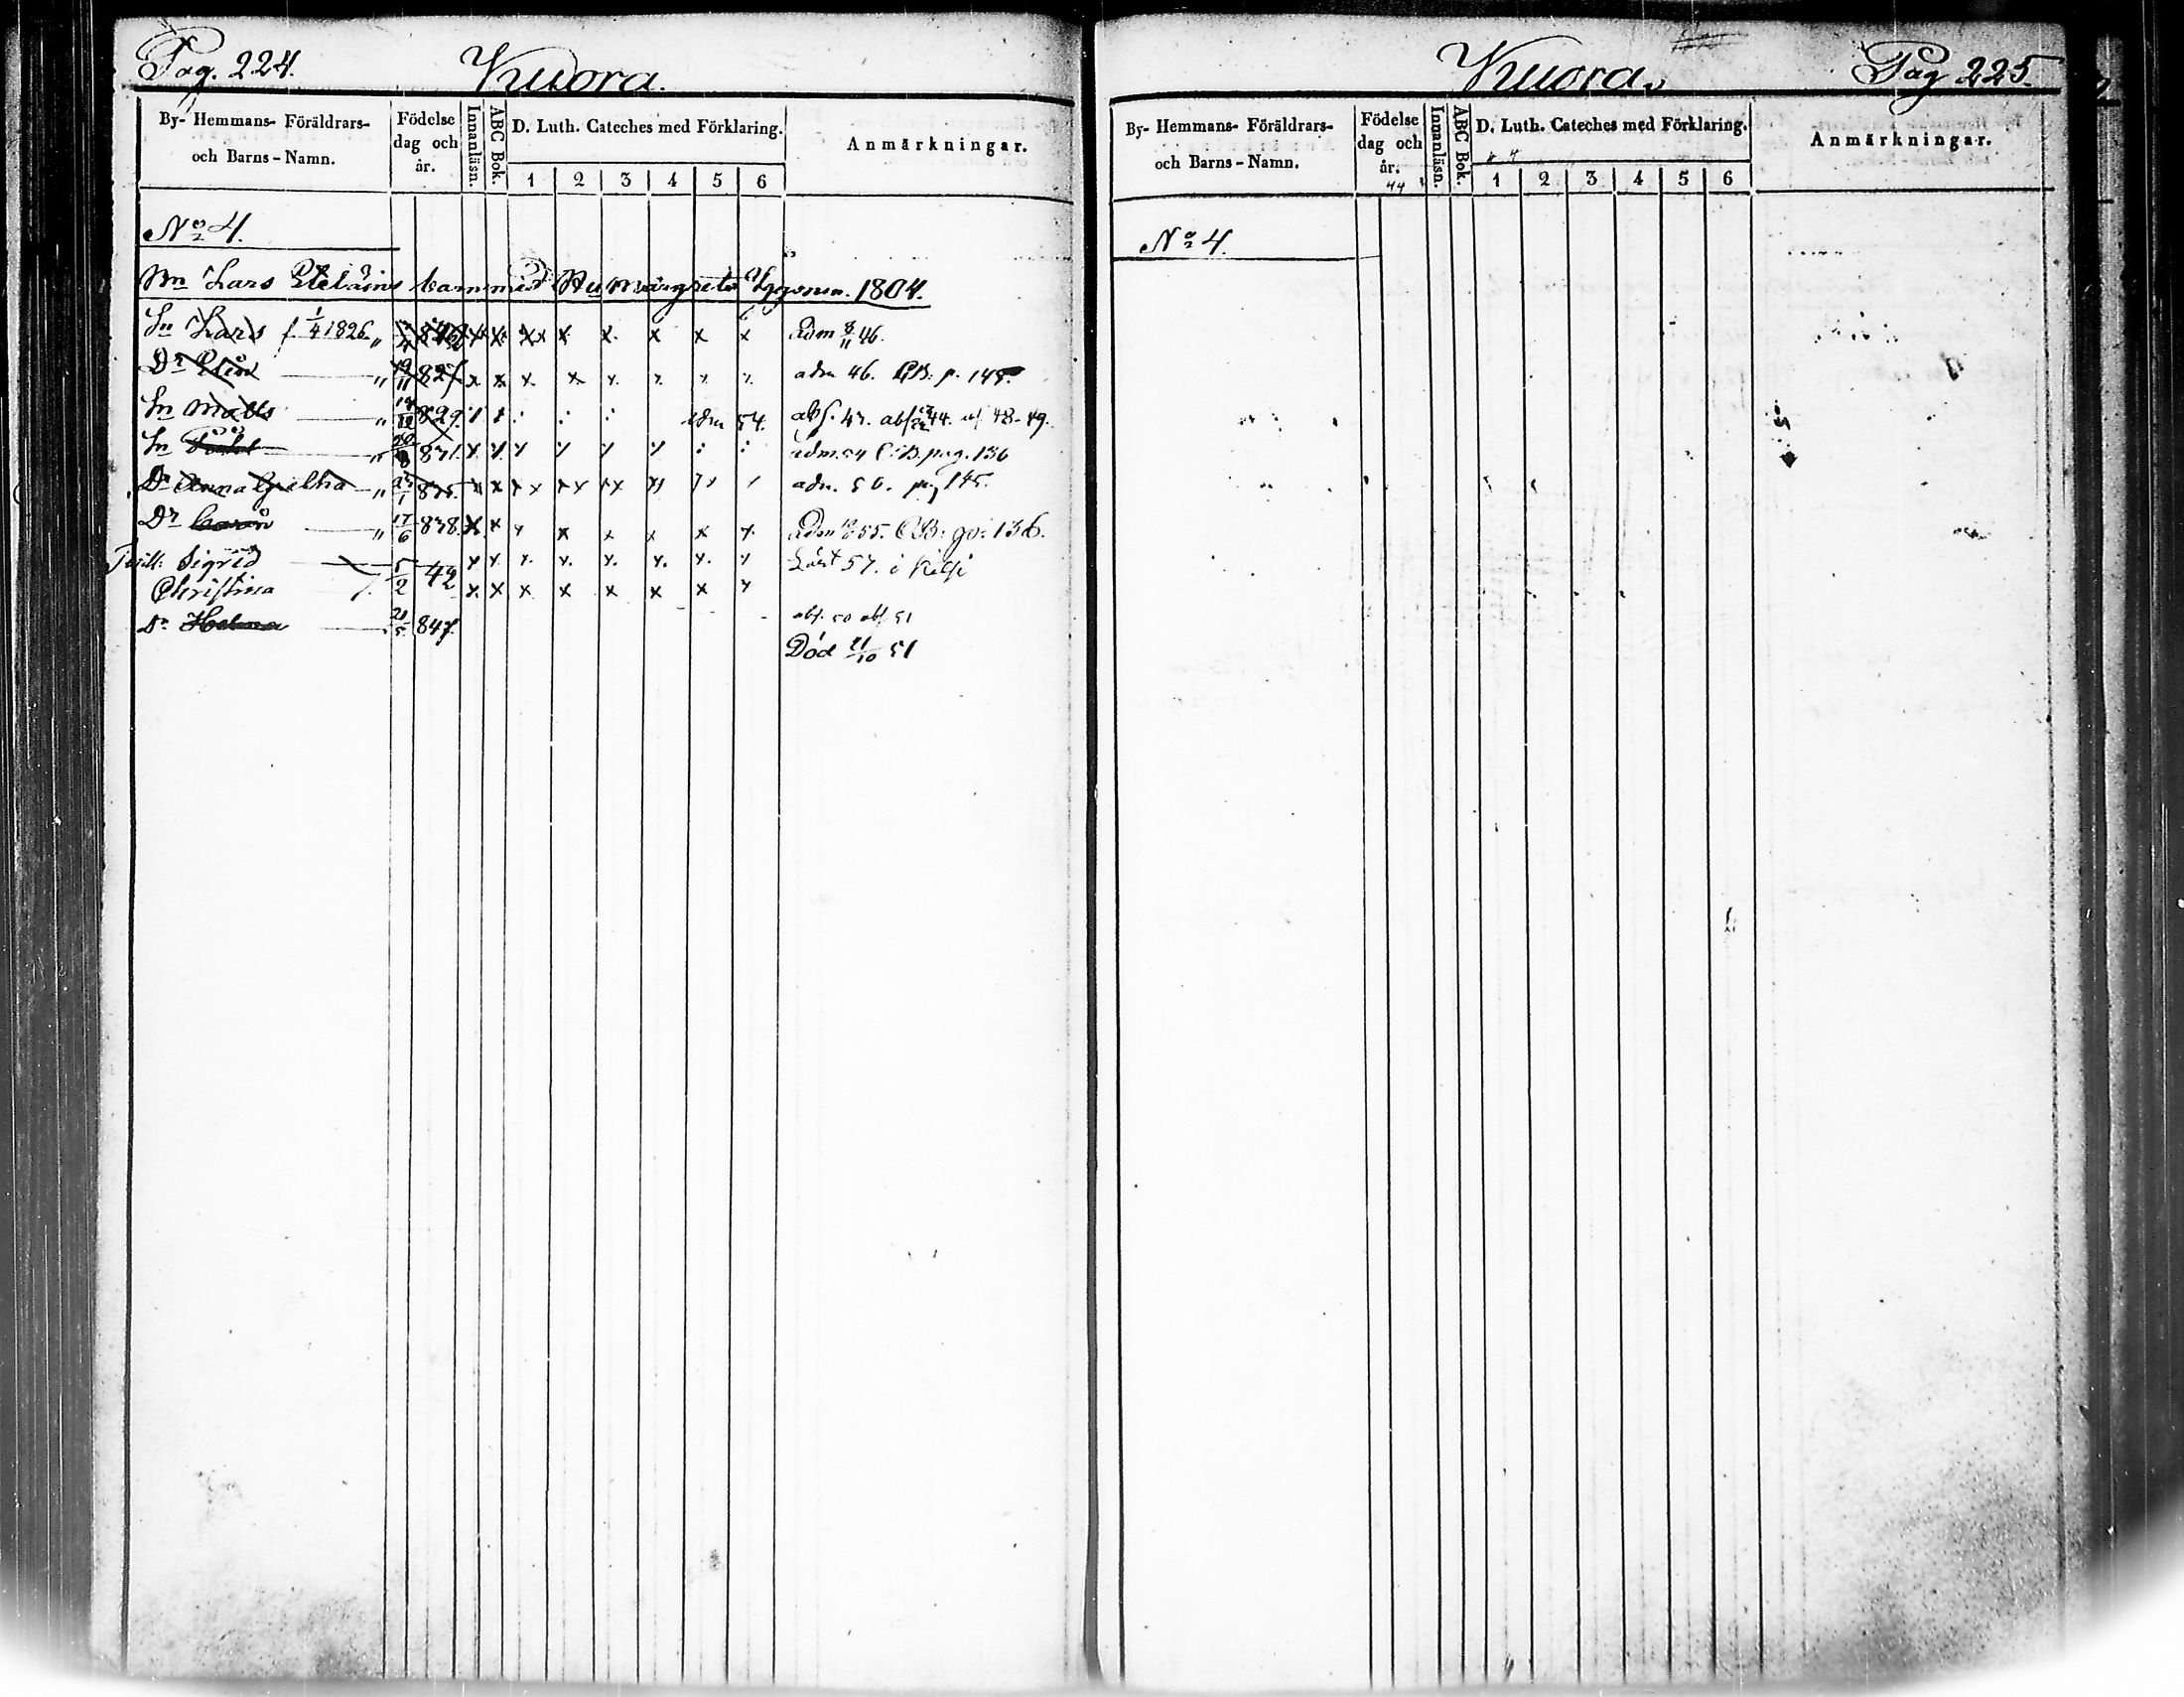 Pag. 224. Kuora.
By- Hemmans- Föräldrars- och Barns-Namn. Födelse dag och år. Innanläsn. ABC Bok. D. Luth. Cateches med Förklaring. Anmärkningar.
1 2 3 4 5 6
No 4.
Bn Lars barn med Hu Margreta 1804.
Sn Lars f. 1/4 1826 x x xx x x. x x x adm 8/11 46.
Dr Elin 19/11 827 x x x x x x x x adm 46. CB: p. 145.
Sn Matts 829 adm 54.
Sn 831. x x x x x x adm. 54 C:B. pag. 136
Dr Anna 25/1 835. x x xx xx xx adm. 56. pag 145.
Dr 17/6 838. x x x x x x x x. adm 55. CB: 136.
Tvill: Sigrid 5/2 42 x x x. x. x. x. x. x.
Christina x x x x x x x x
Dr Helena 21/5 847. abs. 50 abs 51
Död 21/10 51
Kuora. Pag 225.
By- Hemmans- Föräldrars- och Barns-Namn. Födelse dag och år. Innanläsn. ABC Bok. D. Luth. Cateches med Förklaring. Anmärkningar.
44
1 2 3 4 5 6
No 4.